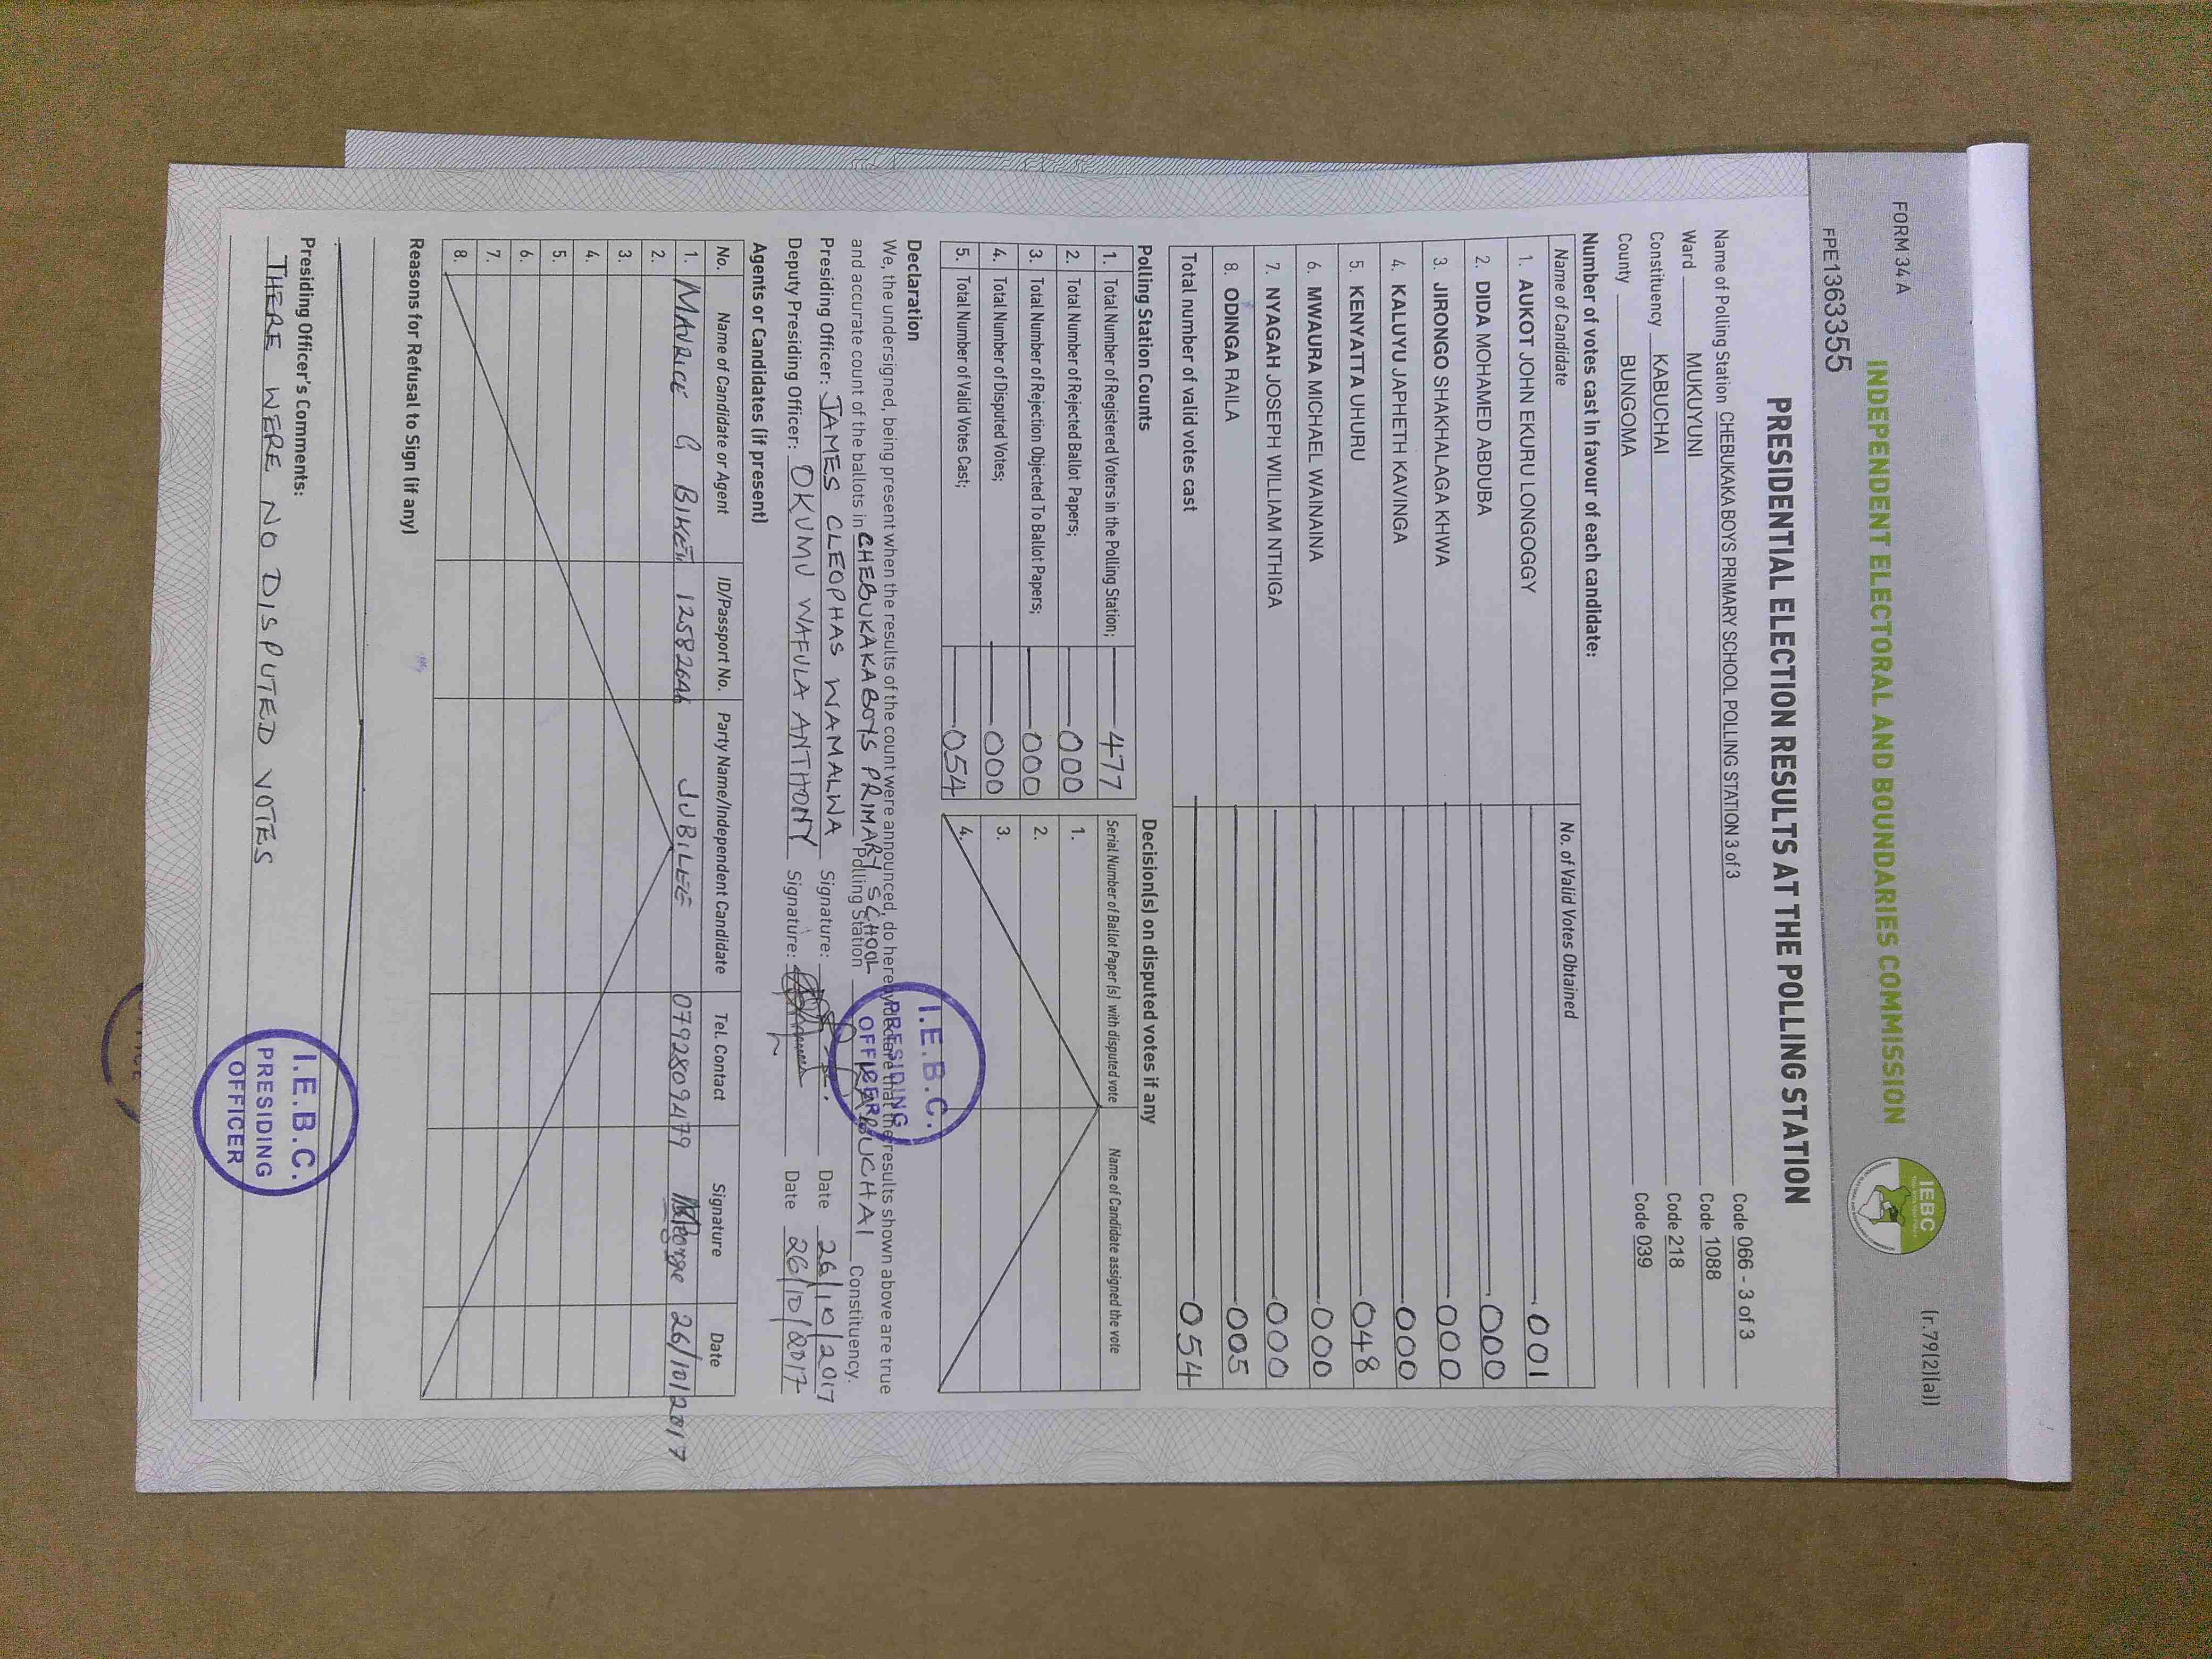 FORM 34 A
(r.79(2)(a))
INDEPENDENT ELECTORAL AND BOUNDARIES COMMISSION
IEBC
FPE1363355
PRESIDENTIAL ELECTION RESULTS AT THE POLLING STATION
Name of Polling Station CHEBUKAKA BOYS PRIMARY SCHOOL POLLING STATION 3 of 3 Code 066 - 3 of 3
Ward MUKUYUNI Code 1088
Constituency KABUCHAI Code 218
County BUNGOMA Code 039
Number of votes cast in favour of each candidate:
Name of Candidate No. of Valid Votes Obtained
1. AUKOT JOHN EKURU LONGOGGY 001
2. DIDA MOHAMED ABDUBA 000
3. JIRONGO SHAKHALAGA KHWA 000
4. KALUYU JAPHETH KAVINGA 000
5. KENYATTA UHURU 048
6. MWAURA MICHAEL WAINAINA 000
7. NYAGAH JOSEPH WILLIAM NTHIGA 000
8. ODINGA RAILA 005
Total number of valid votes cast 054
Polling Station Counts Decision(s) on disputed votes if any
1. Total Number of Registered Voters in the Polling Station; 477 Serial Number of Ballot Paper (s) with disputed vote Name of Candidate assigned the vote
2. Total Number of Rejected Ballot Papers; 000 1.
3. Total Number of Rejection Objected To Ballot Papers; 000 2.
4. Total Number of Disputed Votes; 000 3.
5. Total Number of Valid Votes Cast; 054 4.
Declaration
We, the undersigned, being present when the results of the count were announced, do hereby declare that the results shown above are true
and accurate count of the ballots in CHEBUKAKA BOYS PRIMARY SCHOOL Polling Station KABUCHAI Constituency.
Presiding Officer: JAMES CLEOPHAS WAMALWA Signature: Date 26/10/2017
Deputy Presiding Officer: OKUMU WAFULA ANTHONY Signature: Date 26/10/2017
I.E.B.C.
PRESIDING
OFFICER
Agents or Candidates (if present)
No. Name of Candidate or Agent ID/Passport No. Party Name/Independent Candidate Tel. Contact Signature Date
1. MAURICE G BIKETI JUBILEE 0792809479 26/10/2017
2.
3.
4.
5.
6.
7.
8.
Reasons for Refusal to Sign (if any)
Presiding Officer's Comments:
THERE WERE NO DISPUTED VOTES
I.E.B.C.
PRESIDING
OFFICER